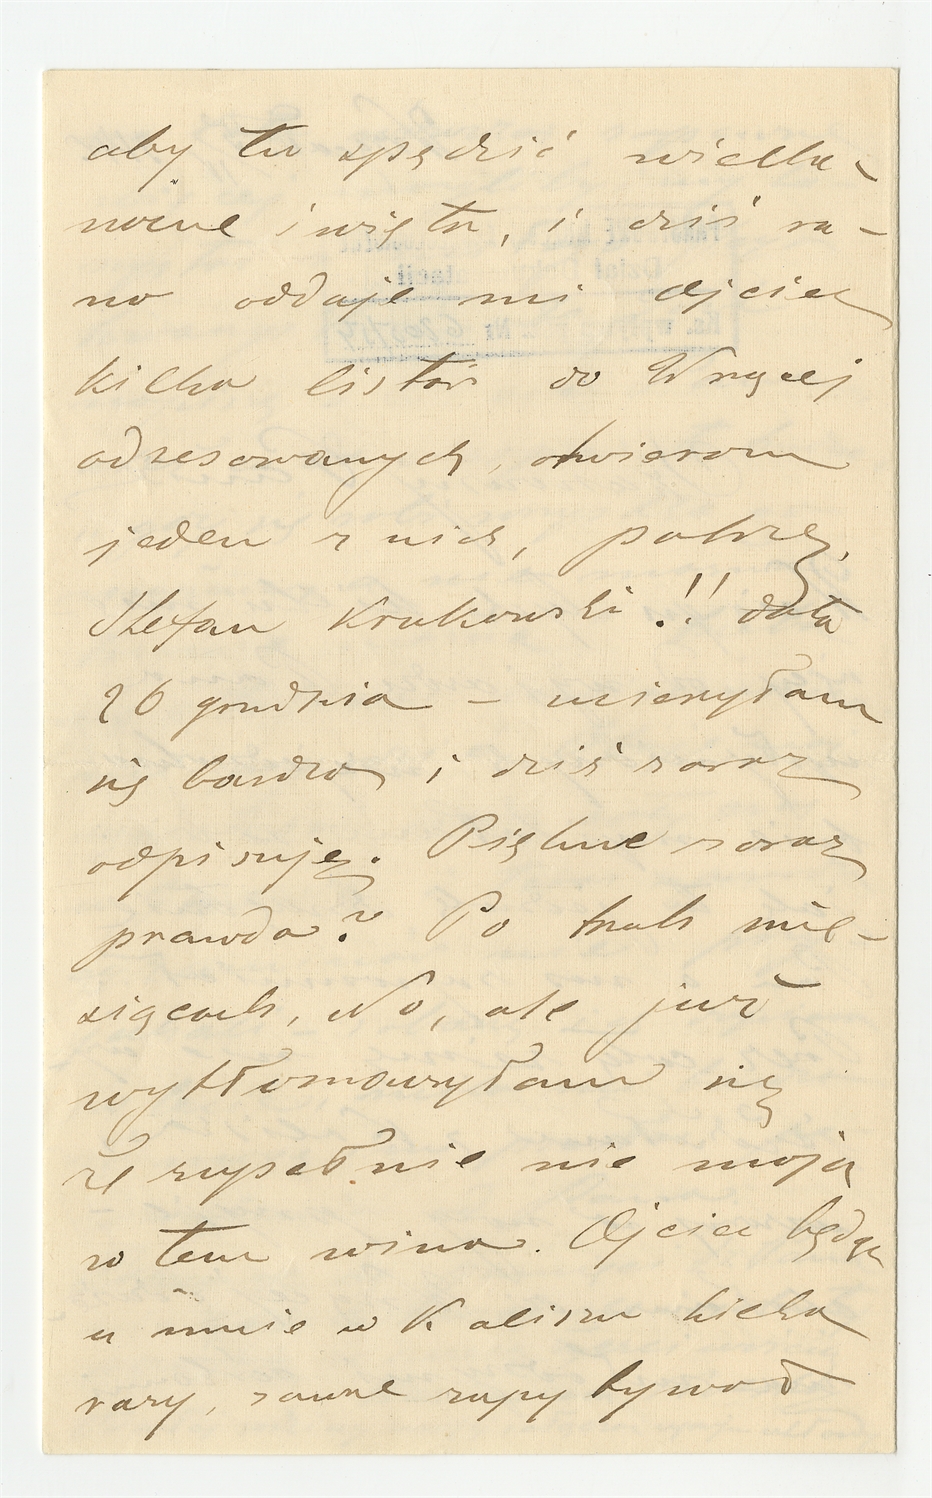 aby tu spędzić wielka-
nocne święta, i dziś ra-
no oddaje mi ojciec
kilka listów do Wręcej
adresowanych, otwieram
jeden z nich, patrzę,
Stefan Krukowski!! data
26 grudnia – ucieszyłam
się bardzo i dziś zaraz
odpisuję. Piękne zaraz
prawda? Po trzech mie-
siącach, No, ale już
wytłomaczyłam się
że zupełnie nie moja
w tem wina. Ojciec będąc
u mnie w Kaliszu kilka
razy, zawsze zapytywał